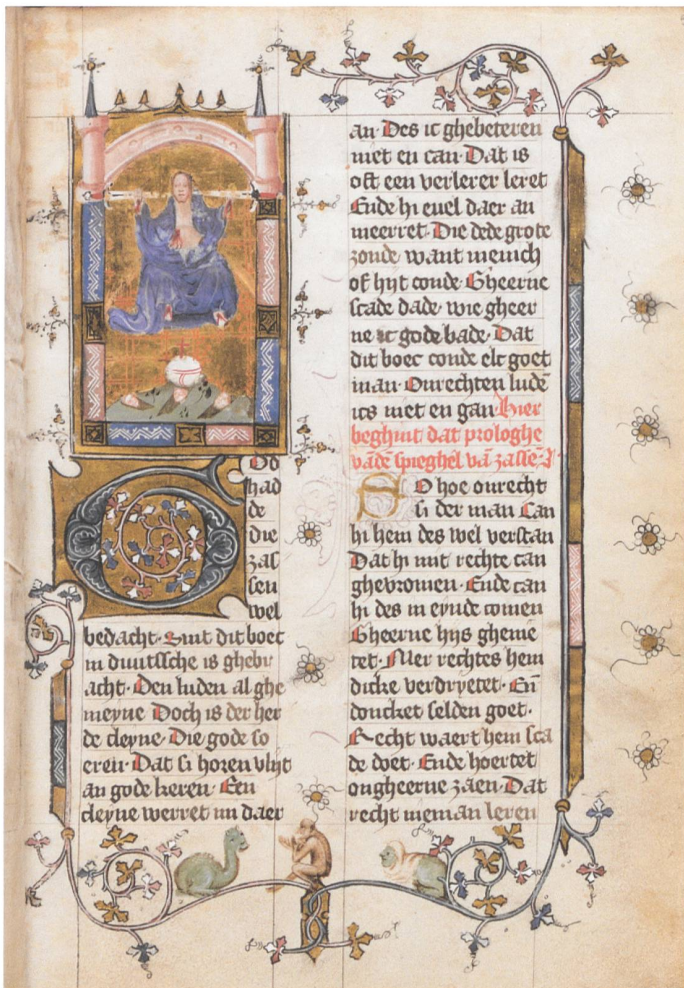 Od
had
de
die
zas
sen
wel
bedacht· Sint dit boec
in duutssche is ghebr
acht· Den luden al ghe
meyne Doch is der her
de cleyne· Die gode so
eren· Dat si horen vlijt
an gode keren· Een
cleyne werret nu daer
an· Des ic ghebeteren
niet en can· Dat is
oft een verkerer leret
Ende hi euel daer an
meerret· Die dede grote
zonde· want menich
of hijt conde· Gheerne
scade dade· wie gheer
ne ic gode bade· Dat
dit boec conde elc goet
man· Onrechten ludē
ics niet en gan· Hier
beghint dat prologhe
vādē spieghel vā zassē
SO hoe onrecht
si der man Can
hi hem des wel verstan
Dat hi mit rechte can
ghevromen· Ende can
hi des in eynde comen
Gheerne hijs ghenie
tet· Mer rechtes hem
dicke verdryetet· Eñ
doncket selden goet·
Recht waert hem sca
de doet· Ende hoertet
ongheerne zaen· Dat
recht nieman leren